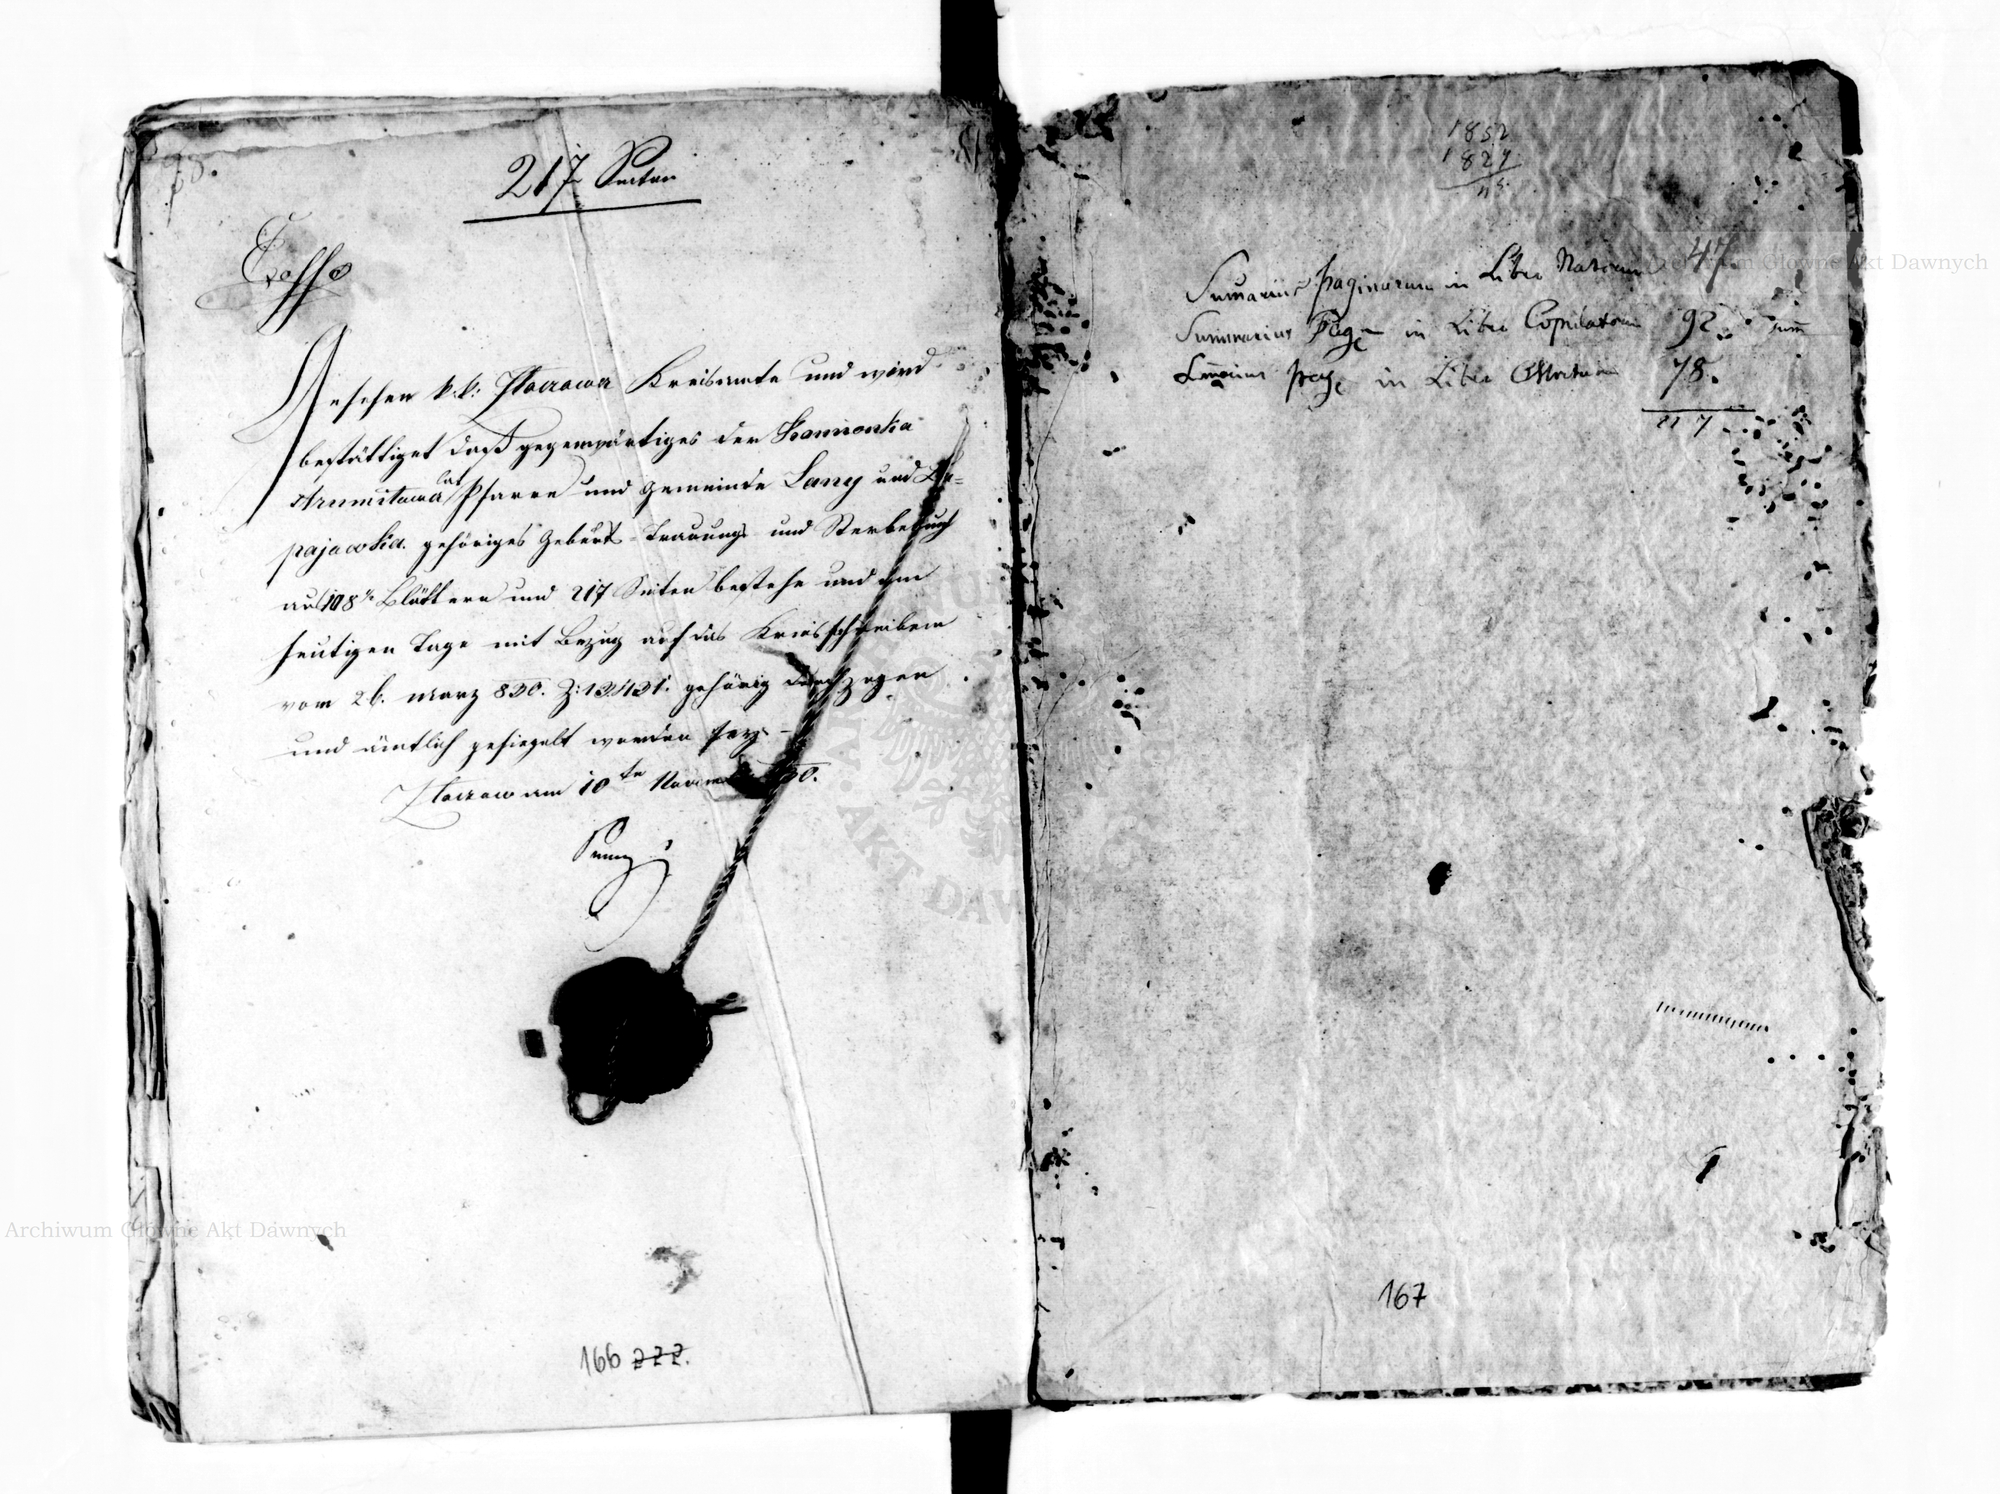 217 Seiten
Gesehen k.k: Zloczower Kreisamte und wird
bestättiget daß gegenwärtiges der Kamionka
Strumilowa lat Pfarre und Gemeinde Lany und
pajowka gehöriges Geburts Trauungs und Sterbebuch
aus 108 ½ Blättern und 217 Seiten bestehe und am
heutigen Tage mit Bezug auf das Kreisschreiben
vom 26. März 830. Z: gehörig durchzogen
und ämtlich gesiegelt worden sey.
Zloczow am 10ten 830.
166 222.
1852
1827
Sumarius paginarum in Libro Natorum 47
Summarius Pag in Libro Copulatorum 92.
Sumarius pag in Libro Mortuorum 78.
217
167
Archiwum Główne Akt Dawnych
Archiwum Główne Akt Dawnych